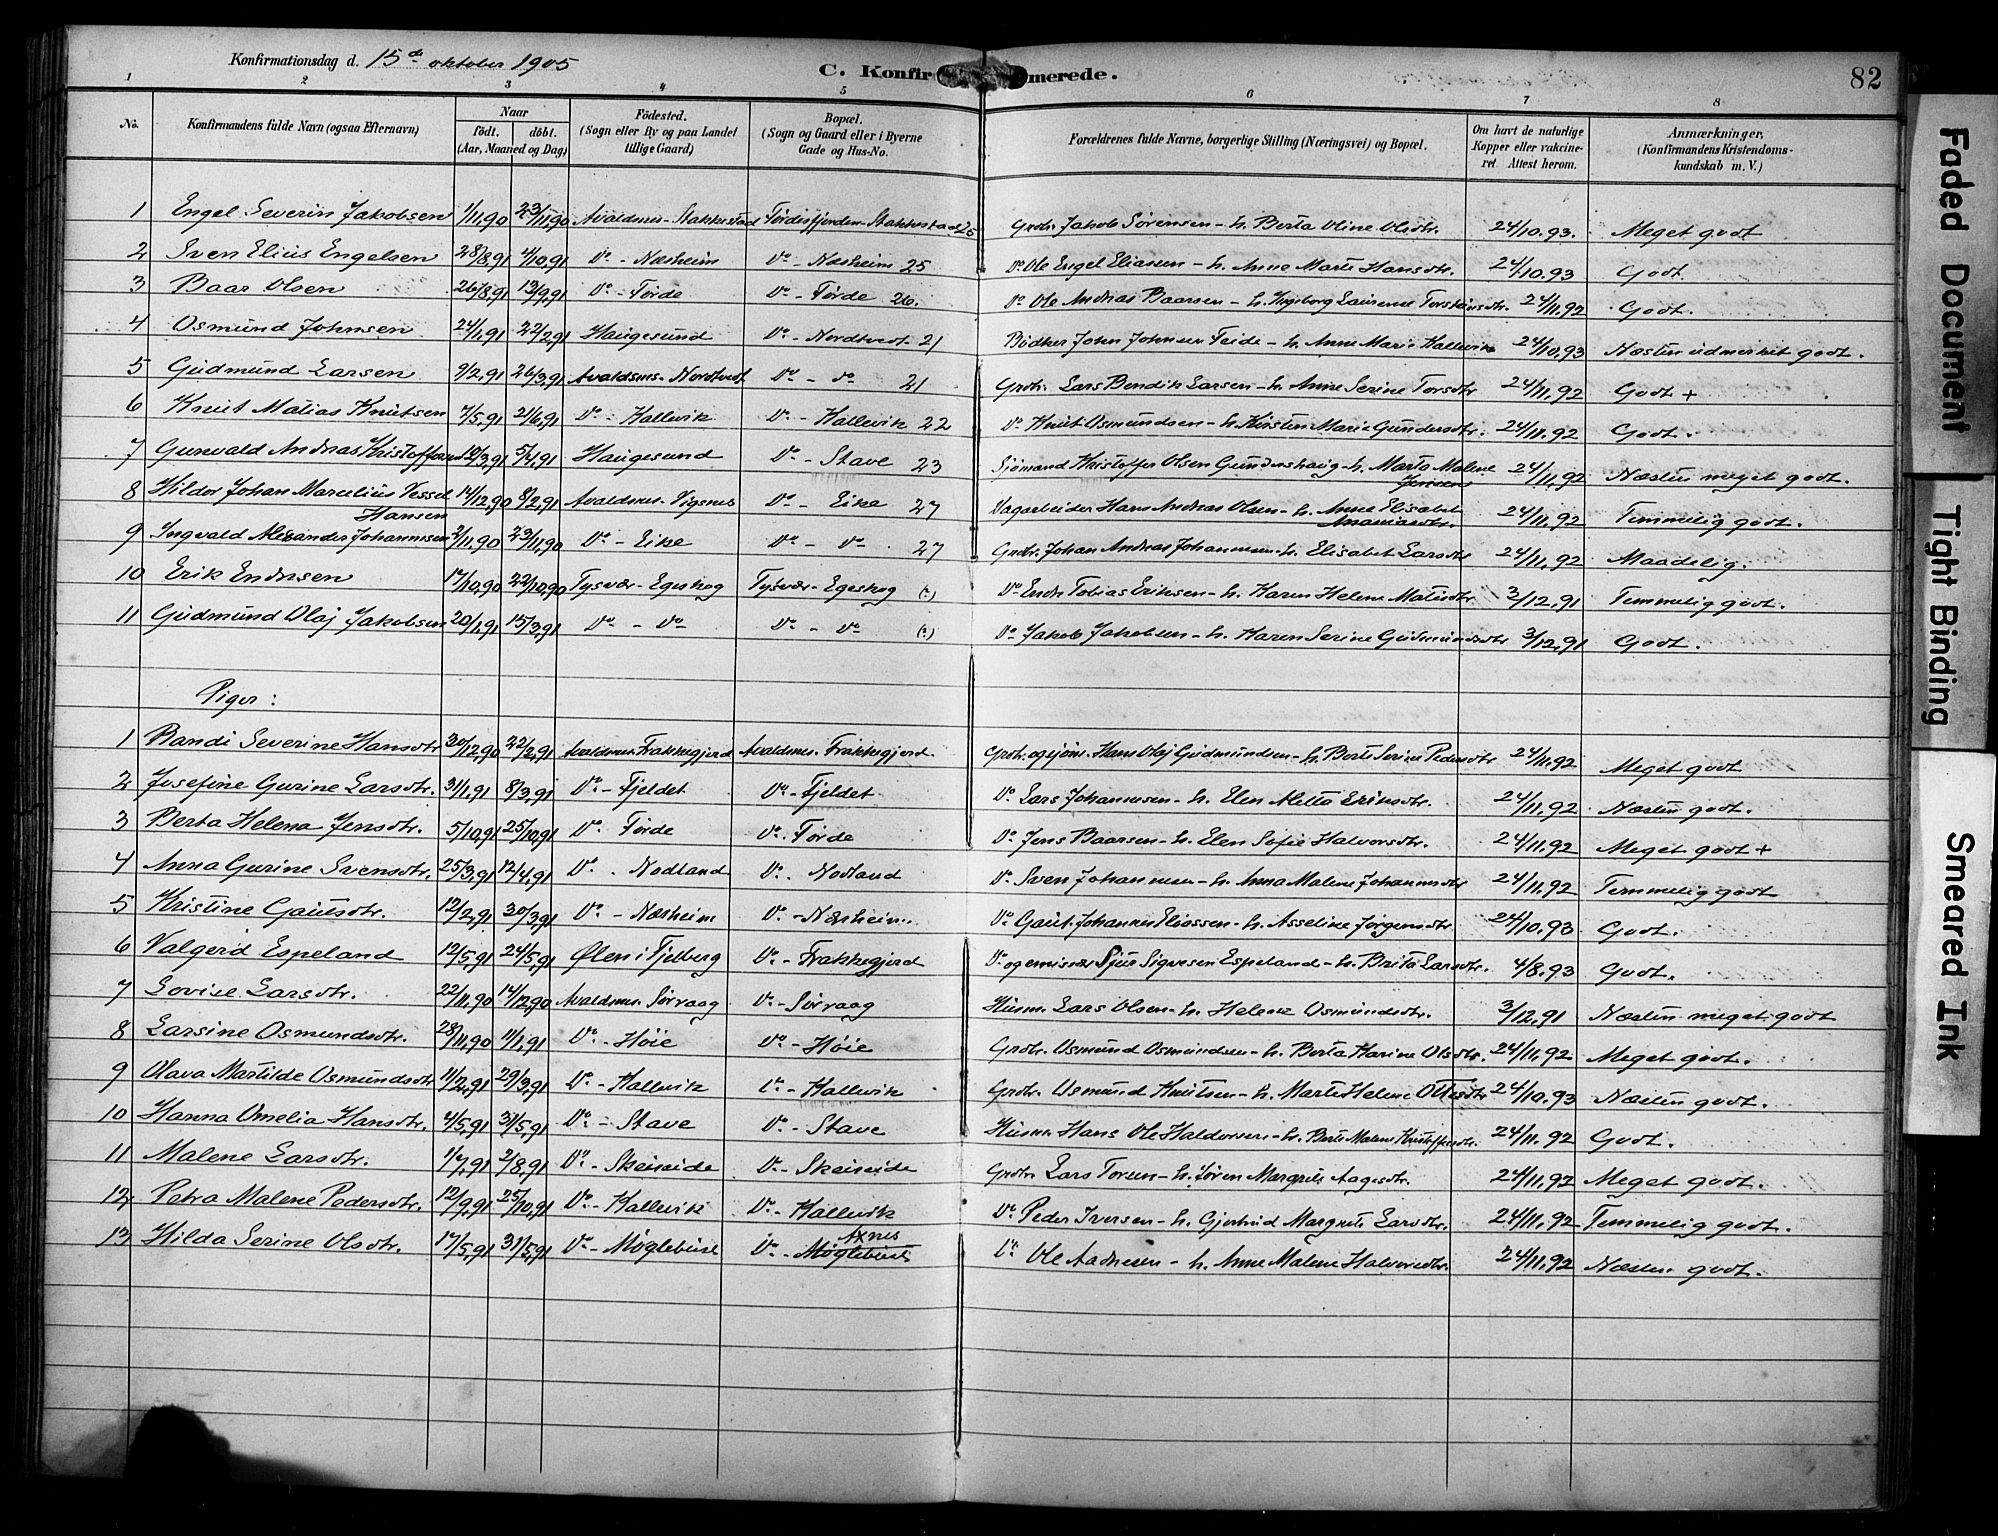 Konfirmationsdag d. 15de oktober 1905
C. Konfirmerede.
82
1 2 3 4 5 6 7 8
No. Konfirmandens fulde Navn (ogsaa Efternavn) Naar födt. döbt. (Aar, Maaned og Dag) Födested. (Sogn eller By og paa Landet tillige Gaard) Bopæl. (Sogn og Gaard eller i Byerne Gade og Hus-No. Forældrenes fulde Navne, borgerlige Stilling (Næringsvei) og Bopæl. Om havt de naturlige Kopper eller vakcineret Attest herom. Anmærkninger, (Konfirmandens Kristendomskundskab m. V.)
1 Engel Severin Jakobsen 1/11,90 23/11,90 Avaldsnes - Stakkestad Førdesfjorden - Stakkestad 25 Grdbr. Jakob Sørensen - h. Berta Oline Olsdtr. 24/10.93. Meget godt
2 Sven Eliüs Engelsen 28/8,91 4/10,91 Do - Næsheim Do - Næsheim 25 Do Ole Engel Eliassen - h. Anne Marte Hansdtr. 24/10.93 Godt
3 Baar Olsen 26/8,91 13/9,91 Do - Førde Do - Førde 26. Do Ole Andreas Baarsen - h. Ingeborg Laurense Torsteinsdtr. 24/11,92 Godt.
4 Osmünd Johnsen 24/1,91 22/2,91 Haügesund Do - Nordtvedt 21 Bødker John Johnsen Feide - h. Anne Marie Hallevik 24/10,93 Næsten üdmerket godt.
5 Güdmünd Larsen 9/2,91 26/3,91 Avaldsnes - Nordtvedt Do - do 21 Grdbr. Lars Bendik Larsen - h. Anne Serine Torsdtr. 24/11,92 Godt +
6 Knüt Matias Knütsen 7/5,91 21/6,91 Do - Hallevik Do - Hallevik 22 Do Knüt Osmündsen - h. Kirsten Marie Gündersdtr. 24/11,92 Godt.
7 Gunvald Andreas Kristoffersen 10/3,91 5/4,91 Haügesund Do - Stave 23 Sjømand Kristoffer Olsen Gundershaug - h. Marta Malene Jensens 24/11,92 Næsten meget godt.
8 Hildor Johan Marcelius Tessel Hansen 14/12,90 8/2,91 Avaldsnes - Vigsnes Do - Eike 27 Dagarbeider Hans Andreas Olsen - h. Anne Elisabet Ananiasdtr. 24/11,92 Temmelig godt.
9 Ingvald Alexander Johannesen 2/11,90 23/11,90 Do - Eike Do - Do 27 Grdbr. Johan Andreas Johannesen - h. Elisabet Larsdtr 24/11,92 Maadelig.
10 Erik Endresen 17/10,90 22/10,90 Tysvær - Egeskog Tysvær - Egeskog Do Endre Tobias Eriksen - h. Karen Helene Matsdtr 3/12,91 Temmelig godt.
11 Güdmünd Olaj Jakobsen 20/1,91 15/3,91 Do - Do Do - Do Do Jakob Jakobsen - h. Karen Serine Güdmündsdtr 3/12,91 Godt.
Piger:
1 Randi Severine Hansdtr 30/12,90 22/2,91 Avaldsnes. Frakkegjerd Avaldsnes. Frakkegjerd Grdbr. og sjøm. Hans Olaj Güdmündsen - h. Berte Serine Pedersdtr 24/11,92 Meget godt
2 Josefine Gurine Larsdtr. 31/1,91 8/3,91 Do - Fjeldet Do - Fjeldet Do Lars Johannesen - h. Elen Mette Eriksdtr. 24/11,92 Næsten godt.
3 Berta Helena Jensdtr. 5/10,91 25/10,91 Do. Førde Do. Førde Do Jens Baarsen - h. Elen Sofie Halvorsdtr. 24/11,92 Meget godt +
4 Anna Gurine Svensdtr. 25/3,91 12/4,91 Do. Nodland Do. Nodland Do Sven Johannesen - h. Anna Malene Johannesdtr 24/11,92 Temmelig godt
5 Kristine Gaütsdtr. 12/2,91 30/3,91 Do - Næsheim Do - Næsheim Do Gaut Johannes Eliassen - h. Asseline Jørgensdtr 24/10.93 Godt.
6 Valgerd Espeland 12/5,91 24/5,91 Ølen i Fjelberg Do - Frakkegjerd Do og emissær Sjur Sigvesen Espeland - h. Brita Larsdtr. 4/8.93 Godt.
7 Lovise Larsdtr. 22/11,90 14/12,90 Avaldsnes. Sørvaag Do - Sørvaag Hüsm. Lars Olsen - h. Helene Osmündsdtr. 3/12,91 Næsten meget godt
8 Larsine Osmundsdtr. 28/11,90 1/1,91 Do - Høie Do - Høie Grdbr. Osmund Osmündsen - h. Berta Karine Olsdtr. 24/11,92 Meget godt.
9 Olava Martilde Osmündsdtr 11/2,91 29/3,91 Do - Hallevik Do - Hallevik Grdbr. Osmund Knütsen - h. Marte Helene Ottesdtr 24/10,93 Næsten godt.
10 Hanna Omelia Hansdtr. 4/5,91 31/5,91 Do - Stave Do - Stave Hüsm. Hans Ole Haldorsen - h. Berte Malene Kristoffersdtr. 24/11.92 Godt.
11 Malene Larsdtr. 1/7,91 2/8,91 Do - Skeiseide Do - Skeiseide Grdbr. Lars Torsen - h. Søren Margrete Aagesdtr. 24/11,92 Meget godt.
12 Petra Malene Pedersdtr. 12/9,91 25/10,91 Do - Hallevik Do - Hallevik Do Peder Iversen - h. Gjertrud Margrete Larsdtr. 24/11,92 Temmelig godt.
13 Hilda Serine Olsdtr. 17/5,91 31/5,91 Do - Møglebüst Do - Møglebüst Axnes Do Ole Aadnesen - h. Anne Malene Halvorsdtr. 24/11,92 Næsten godt.
Faded Document
Tight Binding
Smeared Ink